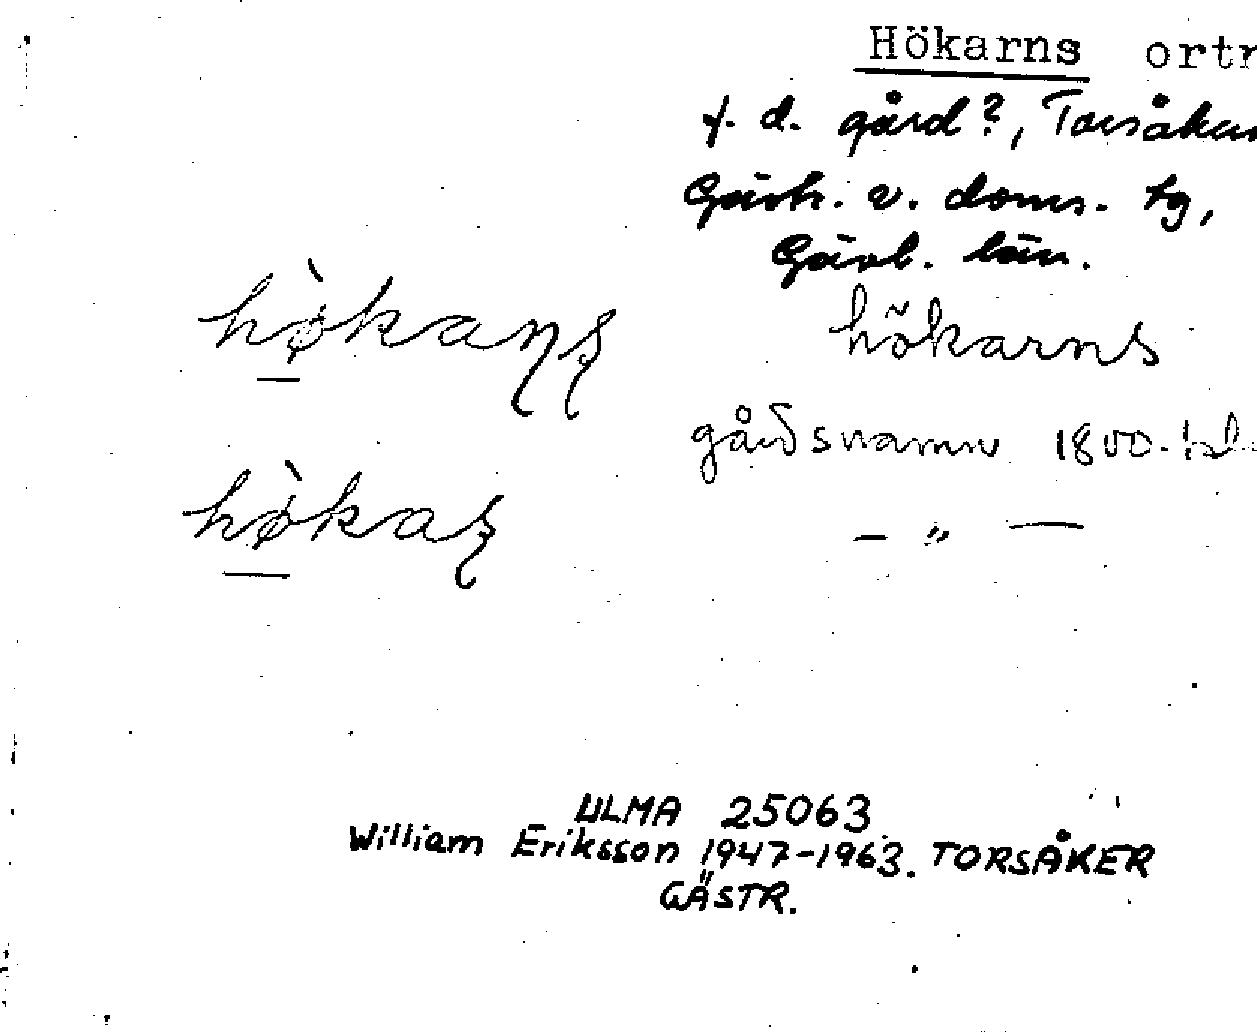 Hökarns ortn
f. d. gård?, Torsåkers
Gästr. v. doms. tg,
Gävl. län.
hökarns
gårdsnamn 1800-tal
– „ —
ULMA 25063
William Eriksson 1947-1963. TORSÅKER
GÄSTR.